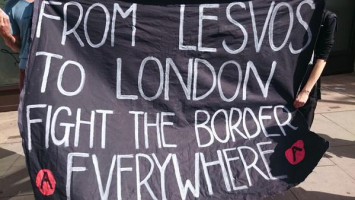 FROM LESVOS
TO LONDON
FIGHT THE BORDER
EVERYWHERE
A
A